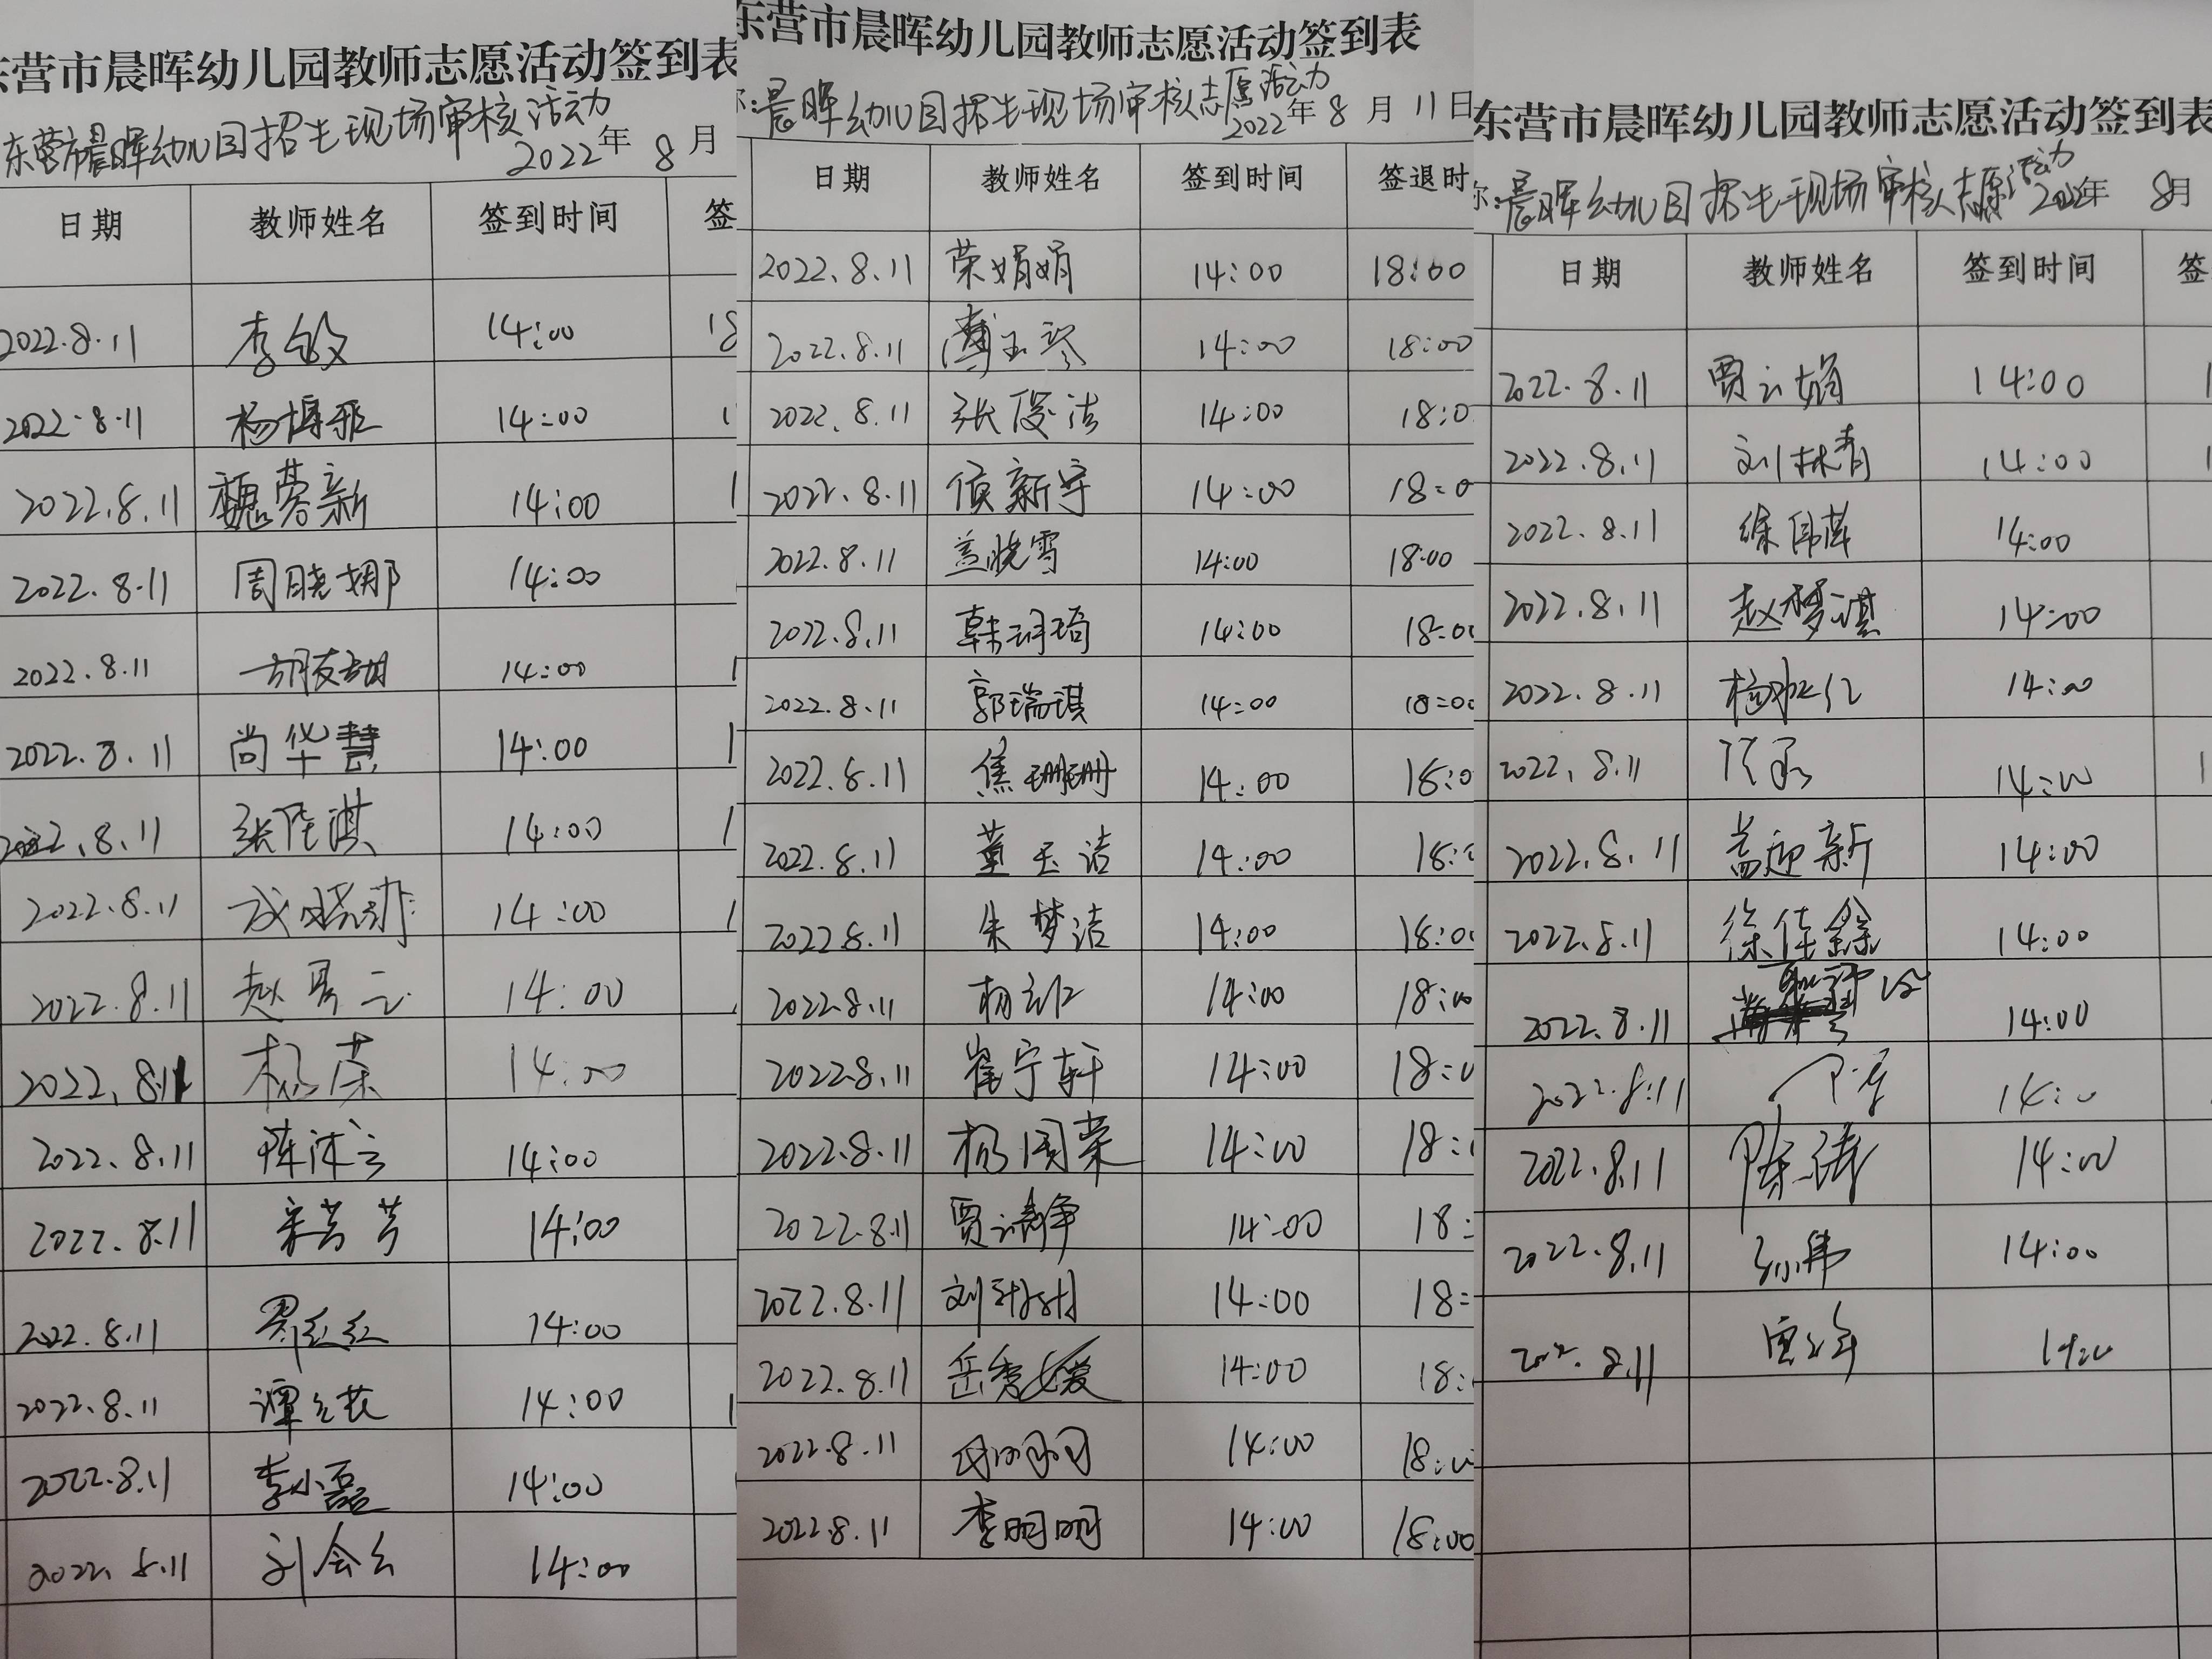 东营市晨晖幼儿园教师志愿活动签到表
东营市晨晖幼儿园招生现场审核活动
2022年 8月
日期 教师姓名 签到时间 签
2022.8.11 李敏 14:00 18
2022.8.11 杨博雅 14:00 1
2022.8.11 魏蓉新 14:00 1
2022.8.11 周晓娜 14:00
2022.8.11 胡友甜 14:00 1
2022.8.11 尚华慧 14:00 1
2022.8.11 张陆淇 14:00 1
2022.8.11 14:00 1
2022.8.11 赵 云 14:00
2022.8.11 杨荣 14:00
2022.8.11 陈沭云 14:00
2022.8.11 宋芳芳 14:00
2022.8.11 红红 14:00
2022.8.11 谭 14:00 1
2022.8.11 李小磊 14:00
2022.8.11 刘会云 14:00
东营市晨晖幼儿园教师志愿活动签到表
称:晨晖幼儿园招生现场审核志愿活动
2022年 8月 11日
日期 教师姓名 签到时间 签退时
2022.8.11 荣娟娟 14:00 18:00
2022.8.11 薄玉琴 14:00 18:00
2022.8.11 张俊洁 14:00 18:0
2022.8.11 侯新宇 14:00 18:0
2022.8.11 盖晓雪 14:00 18:00
2022.8.11 韩珂琦 14:00 18:00
2022.8.11 郭瑞琪 14:00 18:00
2022.8.11 焦珊珊 14:00 18:0
2022.8.11 董玉洁 14:00 18:
2022.8.11 朱梦洁 14:00 18:00
2022.8.11 杨 14:00 18:00
2022.8.11 崔宁轩 14:00 18:0
2022.8.11 杨国荣 14:00 18:
2022.8.11 贾靖争 14:00 18:
2022.8.11 刘 14:00 18:
2022.8.11 岳秀媛 14:00 18:
2022.8.11 14:00 18:0
2022.8.11 李明明 14:00 18:00
东营市晨晖幼儿园教师志愿活动签到表
称:晨晖幼儿园招生现场审核志愿活动 2022年 8月
日期 教师姓名 签到时间 签
2022.8.11 贾云娟 14:00 1
2022.8.11 刘林青 14:00 1
2022.8.11 徐伟萍 14:00
2022.8.11 赵梦淇 14:00
2022.8.11 杨 14:00
2022.8.11 14:00 1
2022.8.11 盖迎新 14:00
2022.8.11 徐佳鑫 14:00
2022.8.11 14:00
2022.8.11 14:00
2022.8.11 陈涛 14:00
2022.8.11 孙伟 14:00
2022.8.11 14:00